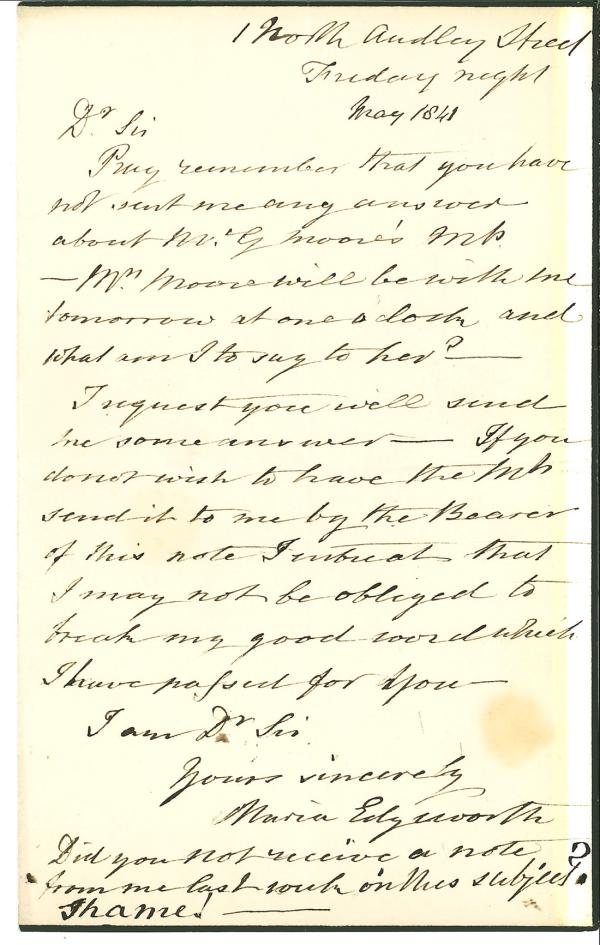 1 North Audley Street
Friday night
May 1841
Dr Sir
Pray remember that you have
not sent me any answer
about Mr G Moore's MS.
— Mrs Moore will be with me
tomorrow at one o clock and
what am I to say to her? —
I request you will send
me some answer — If you
do not wish to have the MS
send it to me by the Bearer
of this note I intreat that
I may not be obliged to
break my good word which
I have passed for you —
I am Dr Sir
Yours sincerely
Maria Edgeworth
Did you not receive a note
from me last week on this subject?
Shame! —